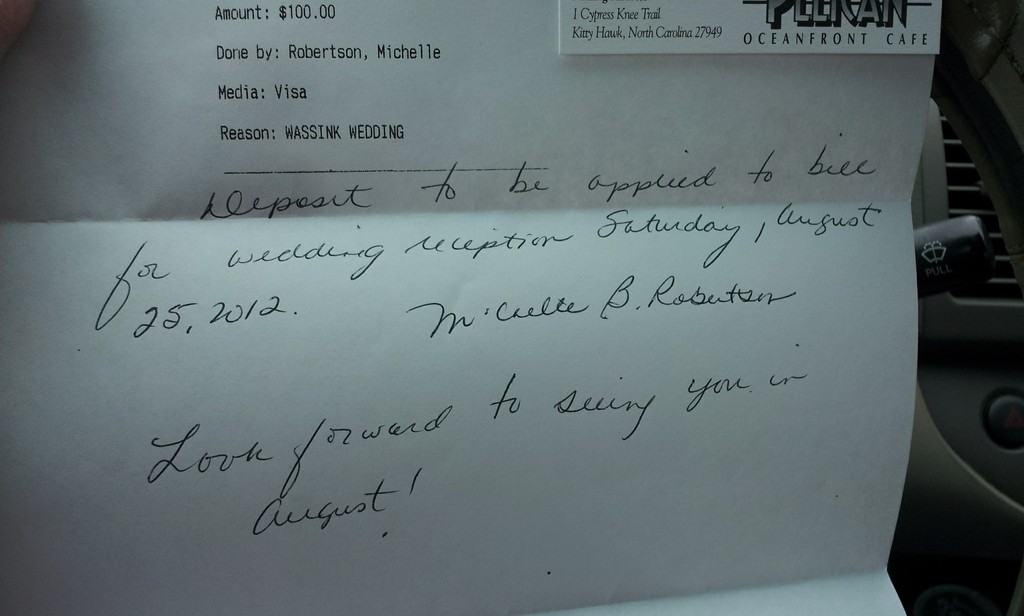 Amount: $100.00
Done by: Robertson, Michelle
Media: Visa
Reason: WASSINK WEDDING
1 Cypress Knee Trail
Kitty Hawk, North Carolina 27949
PELICAN
OCEANFRONT CAFE
Deposit to be applied to bill
for wedding reception Saturday, August
25, 2012. Michelle B. Robertson
Look forward to seeing you in
August!
PULL